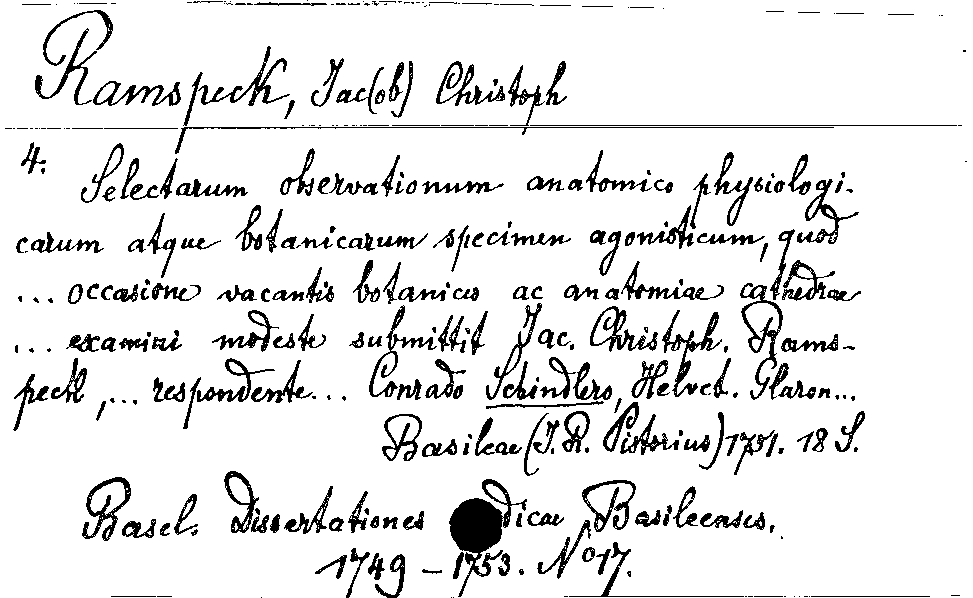 Ramspeck, Jac(ob) Christoph
4. Selectarum observationum anatomico physiologi-
carum atque botanicarum specimen agonisticum, quod
... occasione vacantis botanices ac anatomiae cathedrae
... examini modeste submittit Jac. Christoph. Rams-
peck, ... respondente ... Conrado Schindlero, Helvet. Glaron...
Basileae (J. R. Pistorius) 1751. 18 S.
Basel. Dissertationes dicae Basileenses.
1749 - 1753. No 17.